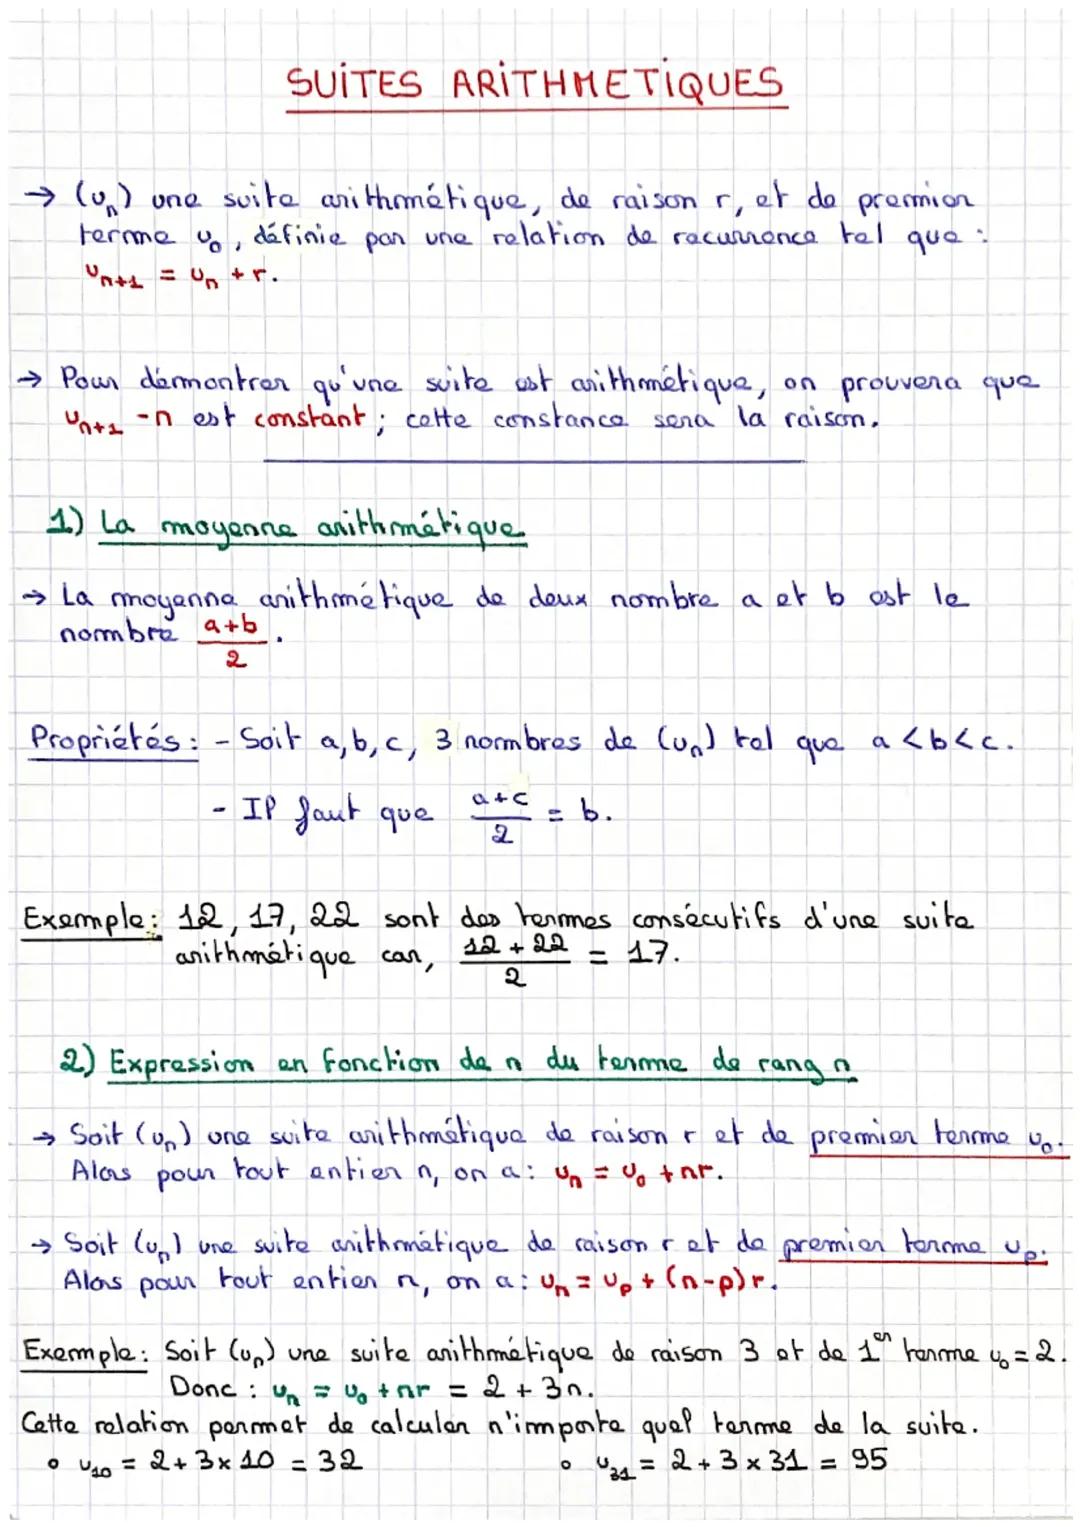 SUITES ARITHMETIQUES
→ (uₙ) une suite arithmétique, de raison r, et de premier
terme u₀, définie par une relation de récurrence tel que :
uₙ₊₁ = uₙ + r.
→ Pour démontrer qu'une suite est arithmétique, on prouvera que
uₙ₊₁ - n est constant ; cette constance sera la raison.
1) La moyenne arithmétique
→ La moyenne arithmétique de deux nombre a et b est le
nombre (a+b)/2.
Propriétés : - Soit a, b, c, 3 nombres de (uₙ) tel que a < b < c.
- Il faut que (a+c)/2 = b.
Exemple : 12, 17, 22 sont des termes consécutifs d'une suite
arithmétique car, (12 + 22)/2 = 17.
2) Expression en fonction de n du terme de rang n
→ Soit (uₙ) une suite arithmétique de raison r et de premier terme u₀.
Alors pour tout entier n, on a : uₙ = u₀ + nr.
→ Soit (uₙ) une suite arithmétique de raison r et de premier terme uₚ.
Alors pour tout entier n, on a : uₙ = uₚ + (n-p)r.
Exemple : Soit (uₙ) une suite arithmétique de raison 3 et de 1er terme u₀ = 2.
Donc : uₙ = u₀ + nr = 2 + 3n.
Cette relation permet de calculer n'importe quel terme de la suite.
• u₁₀ = 2 + 3 x 10 = 32 • u₃₁ = 2 + 3 x 31 = 95